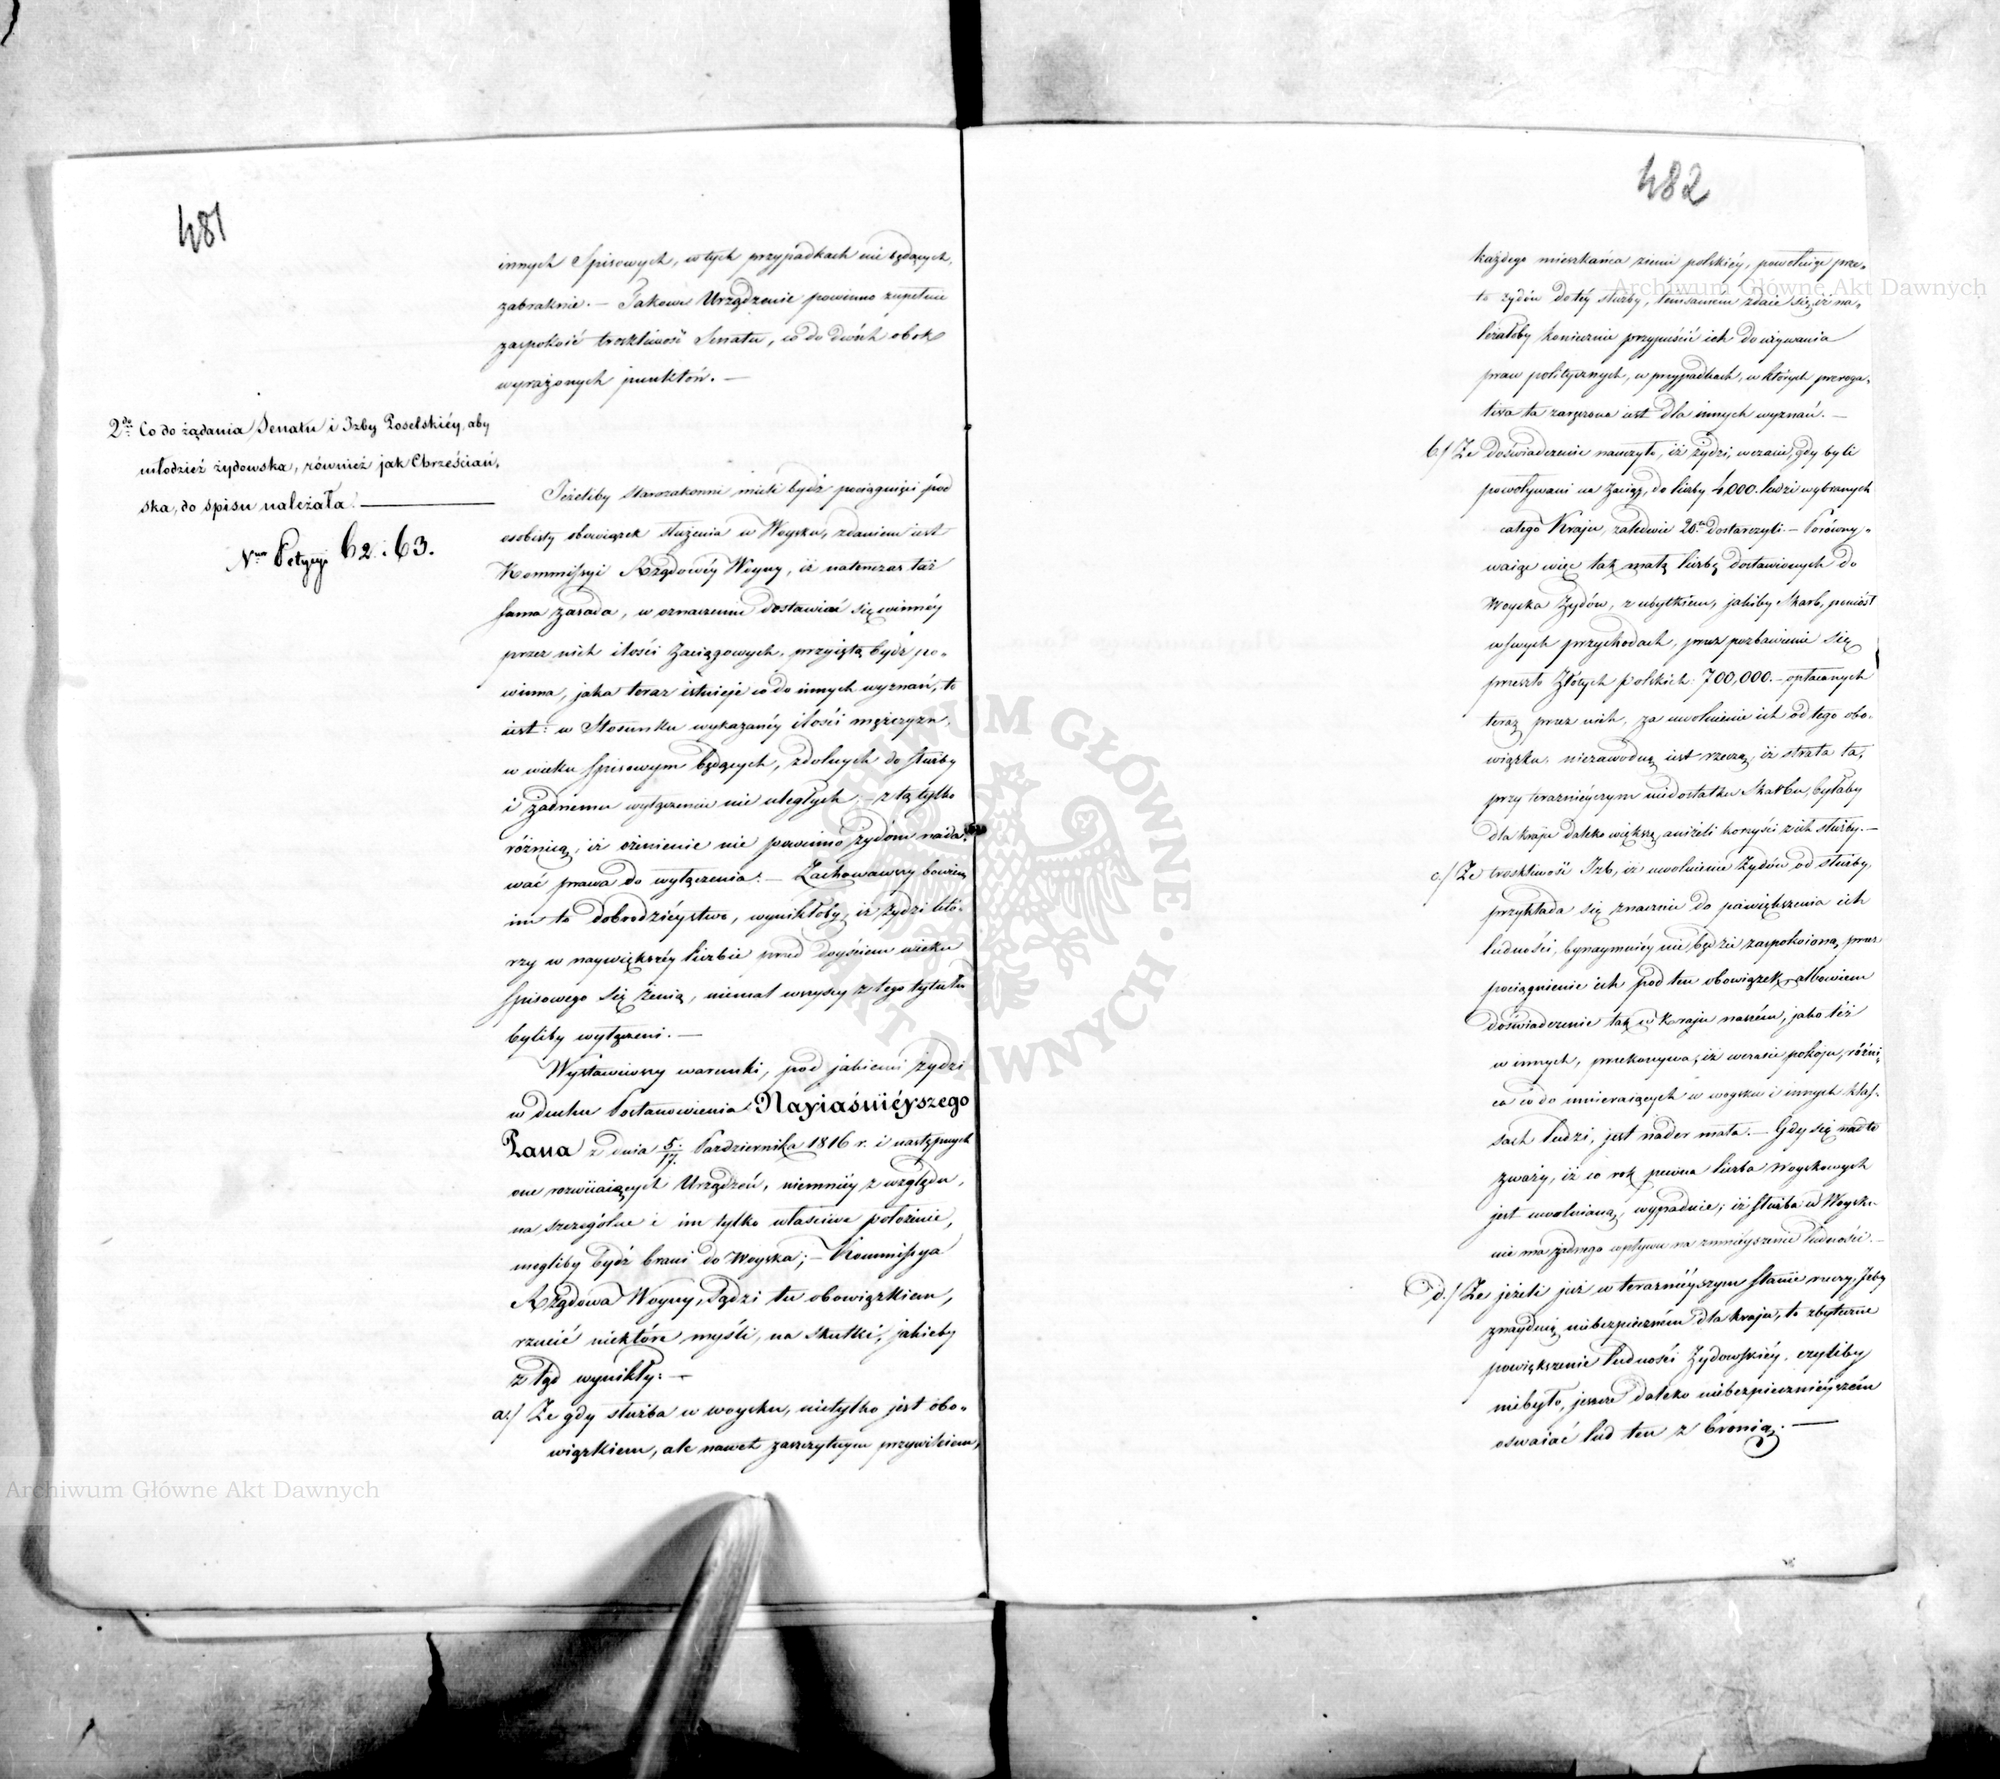 481
innych Spisowych, w tych przypadkach nie będących,
zabraknie. — Takowe Urządzenie powinno zupełnie
zaspokoić troskliwość Senatu, co do dwóch obok
wyrażonych punktów. —
2do Co do żądania Senatu i Izby Poselskiéy, aby
młodzież żydowska, również jak Chrześciań-
ska, do spisu należała. —
Nrm Petycyi 62. i 63.
Jeżeliby starozakonni mieli bydź pociągnięci pod
osobisty obowiązek służenia w Woysku, zdaniem iest
Kommissyi Rządowéy Woyny, iż natenczas taż
sama zasada, w oznaczeniu dostawiać się winnéy
przez nich ilości zaciągowych, przyiętą bydź po-
winna, jaka teraz istnieje co do innych wyznań, to
iest: w Stosunku wykazanéy ilości mężczyzn,
w wieku spisowym będących, zdolnych do służby
i żadnemu wyłączeniu nie uległych, — z tą tylko
różnicą, iż ożenienie nie powinno żydom nada-
wać prawa do wyłączenia. — Zachowawszy bowiem
im to dobrodzieystwo, wynikłoby, iż żydzi któ-
rzy w naywiększéy liczbie przed doyściem wieku
spisowego się żenią, niemal wszyscy z tego tytułu
byliby wyłączeni. —
Wystawiwszy warunki, pod jakiemi żydzi
w duchu Postanowienia Nayiaśniéyszego
Pana z dnia 5/17. Pazdziernika 1816 r. i następnych
one rozwiiaiących Urządzeń, niemniéy z względu,
na szczególne i im tylko właściwe położenie,
mogliby bydź brani do Woyska; — Kommissya
Rządowa Woyny, sądzi tu obowiązkiem,
rzucić niektóre myśli, na skutki, jakieby
z tąd wynikły: —
a./ Że gdy służba w woysku, nietylko jest obo-
wiązkiem, ale nawet zaszczytnym przywileiem,
482
każdego mieszkańca ziemi polskiéy, powołuiąc prze-
to żydów do téy służby, temsamem zdaie się, iż na-
leżałoby koniecznie przypuścić ich do używania
praw politycznych, w przypadkach, w których preroga-
tiwa ta zawarowana iest dla innych wyznań. —
b./ Że doświadczenie nauczyło, iż żydzi, wczasie, gdy byli
powoływani na zaciąg, do liczby 4,000. ludzi wybranych
całego Kraju, zaledwie 20tu dostarczyli. — Porówny-
waiąc więc tak małą liczbę dostawionych do
Woyska Żydów, z ubytkiem, jakiby Skarb, poniósł
w swych przychodach, przez pozbawienie się
przeszło Złotych polskich 700,000. — opłacanych
teraz przez nich, za uwolnienie ich od tego obo-
wiązku, niezawodną iest rzeczą, iż strata ta,
przy teraznieyszym niedostatku Skarbu, byłaby
dla kraju daleko większą, aniżeli korzyści z ich służby. —
c./ Że troskliwość Izb, iż uwolnienie Żydów od służby,
przykłada się znacznie do powiększenia ich
ludności, bynaymniéy nie będzie zaspokoioną, przez
pociągnienie ich pod ten obowiązek, albowiem
doświadczenie tak w Kraju naszém, jako też
w innych, przekonywa, iż wczasie pokoju, różni-
ca co do umieraiących w woysku i innych klas-
sach ludzi, jest nader mała. — Gdy się nadto
zważy, iż co rok pewna liczba Woyskowych
jest uwolnianą, wypadnie; iż służba w Woysku
nie ma żadnego wpływu na zmnieyszenie ludności. —
d./ Że jeżeli już w teraznieyszym stanie rzeczy, Izby
znayduią niebezpieczném dla kraju, to zbyteczne
powiększenie ludności Żydowskiéy, czyliby
niebyło, jeszcze daleko niebezpiecznieyszém
oswaiać lud ten z bronią. —
Archiwum Główne Akt Dawnych
Archiwum Główne Akt Dawnych
ARCHIWUM GŁÓWNE AKT DAWNYCH